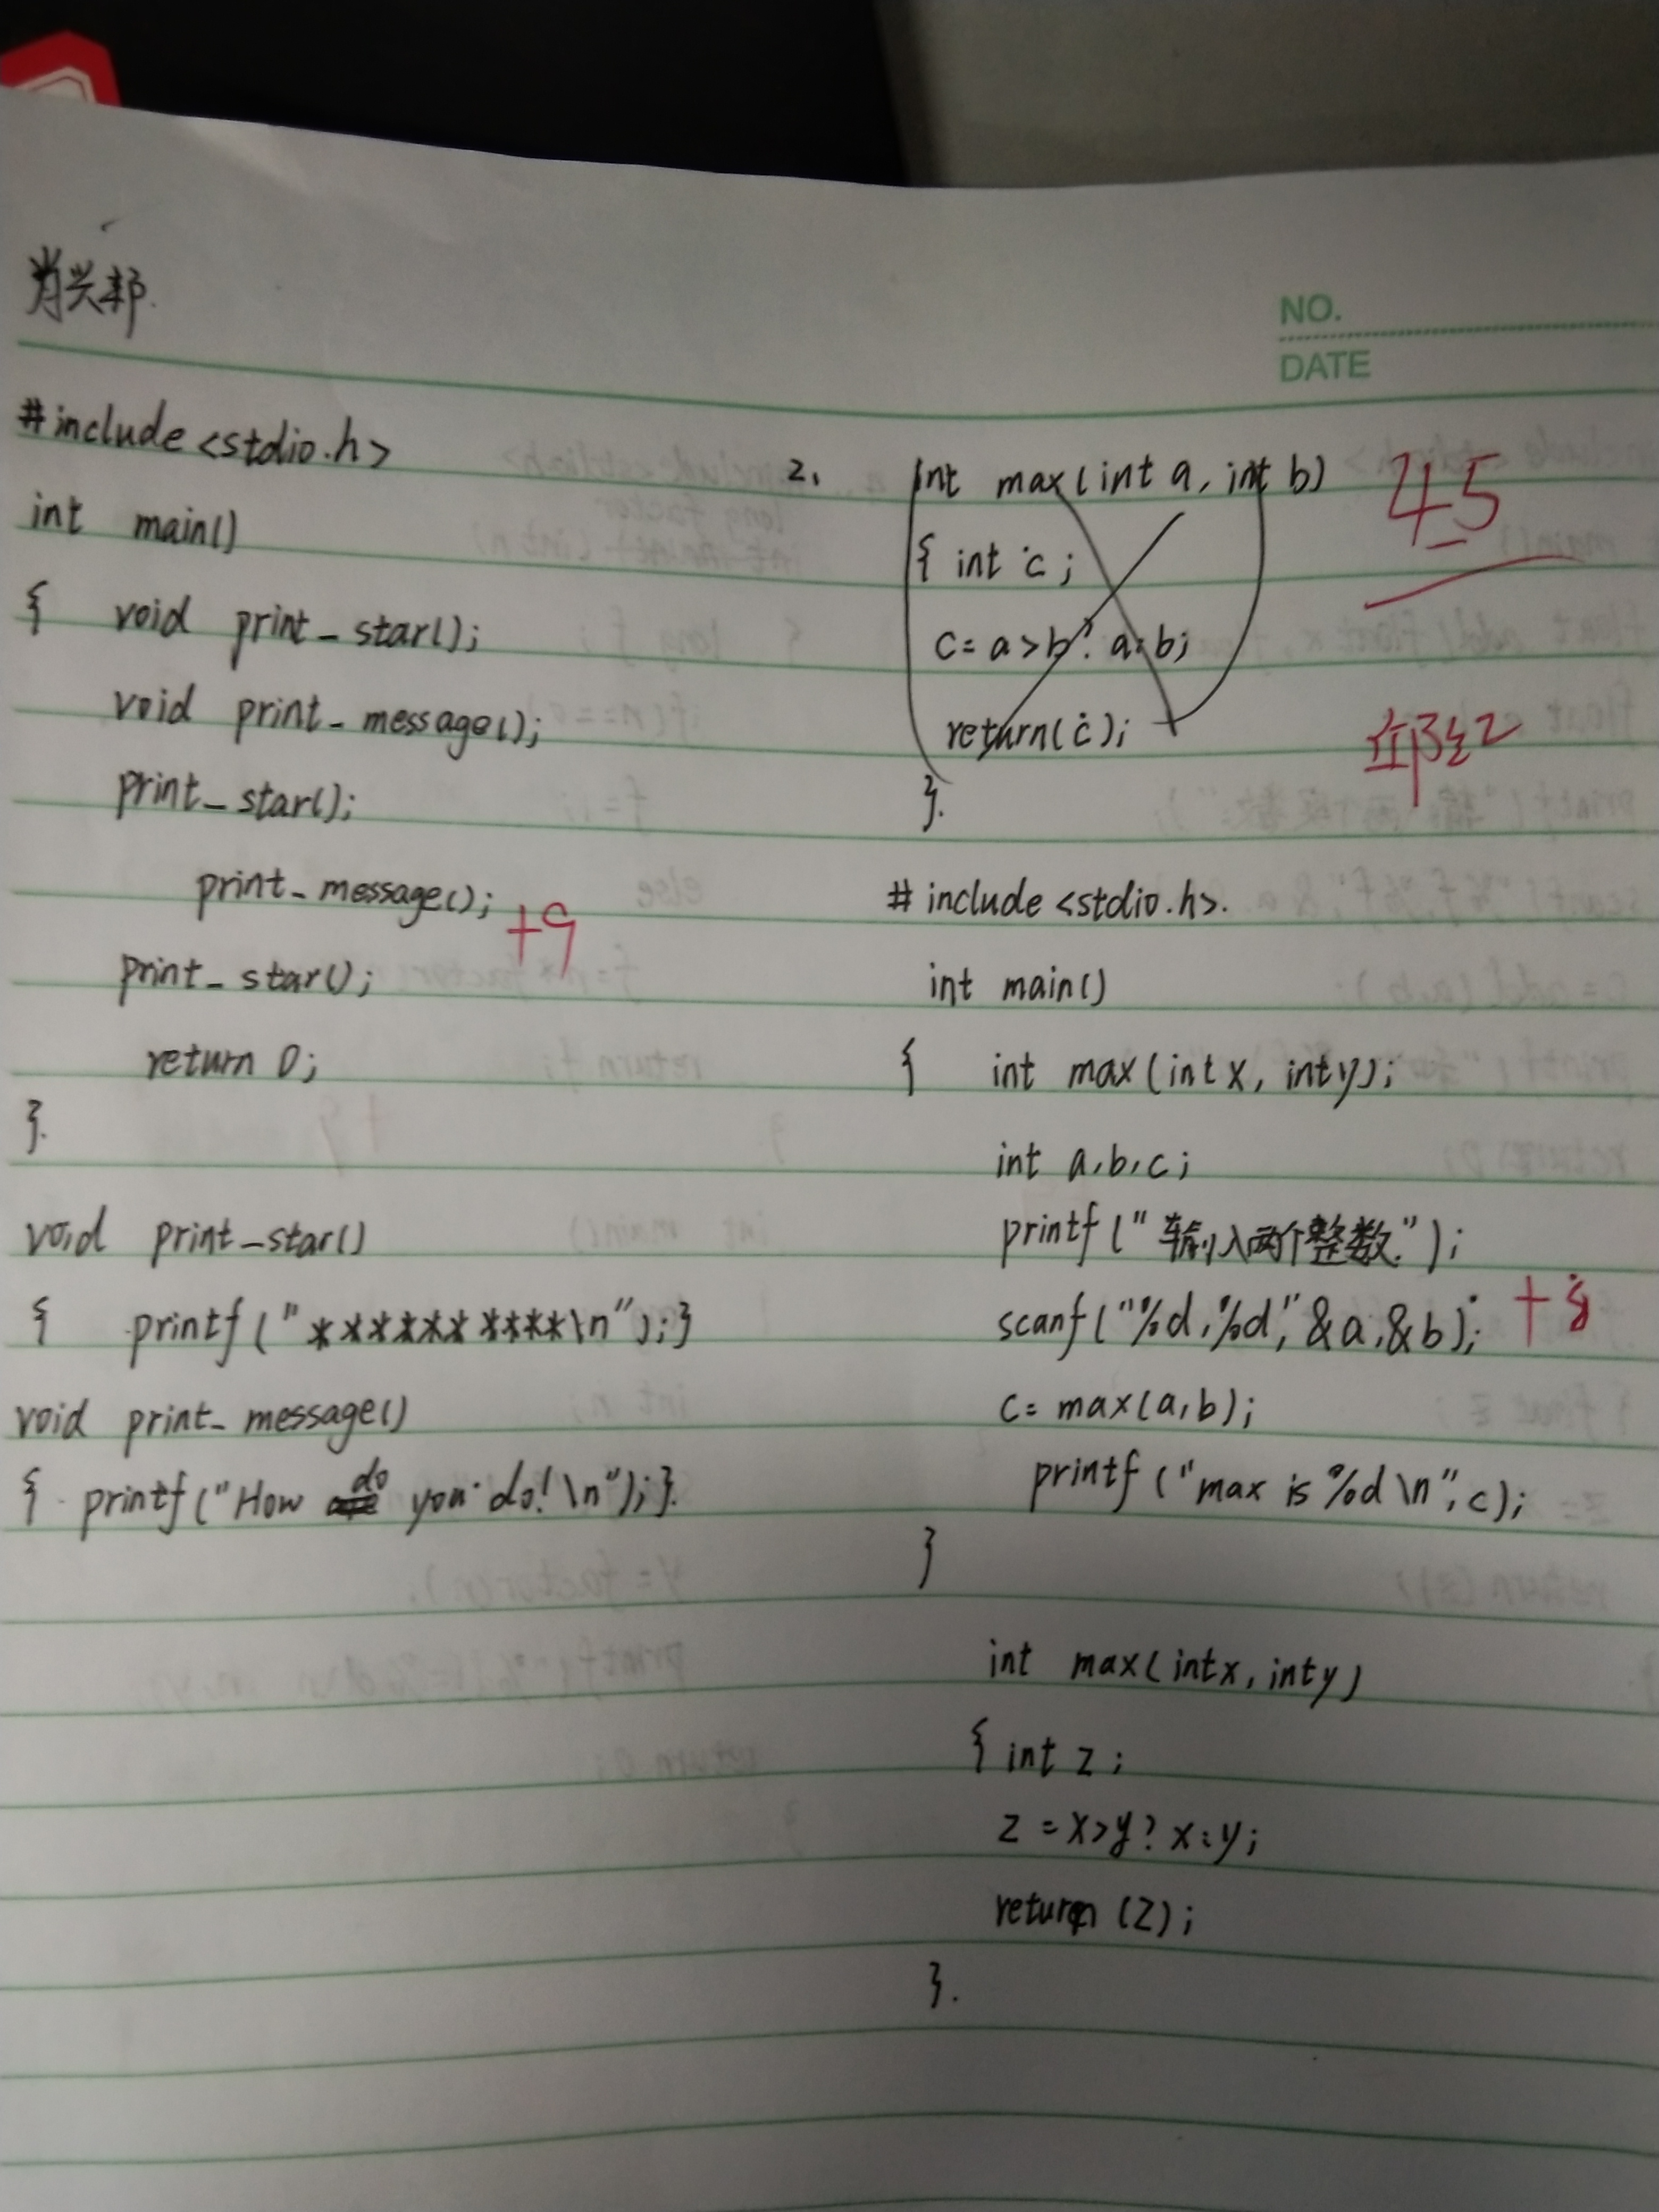 肖兴邦.
NO.
DATE
#include<stdio.h>
int main()
{ void print_star();
void print_message();
print_star();
print_message();
+9
print_star();
return 0;
}.
void print_star()
{ printf("**********\n");}
void print_message()
{ printf("How do you do!\n");}.
2. int max(int a, int b)
{ int c;
c=a>b?a:b;
return(c);
}.
45
#include<stdio.h>.
int main()
{ int max(int x, int y);
int a,b,c;
printf("输入两个整数.");
scanf("%d,%d,"&a,&b);
c=max(a,b);
printf("max is %d\n",c);
}
int max(int x, int y)
{ int z;
z=x>y?x:y;
return (z);
}.